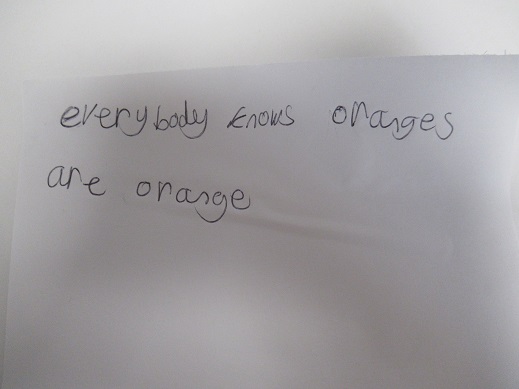 everybody knows oranges
are orange